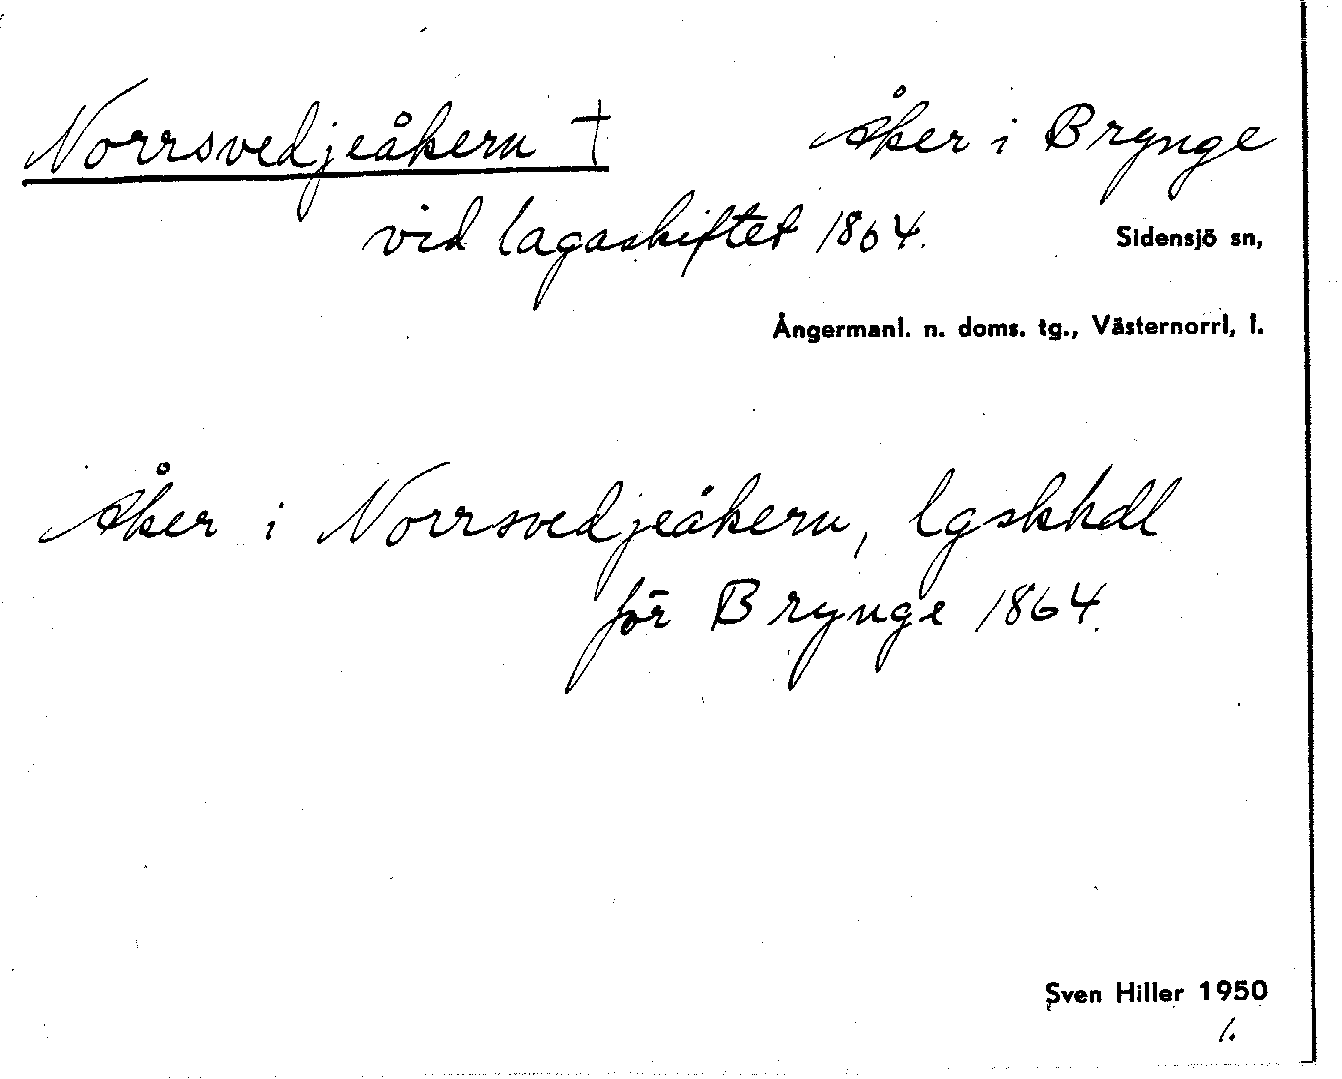 Norrsvedjeåkern † Åker i Brynge
vid lagaskiftet 1864.
Sidensjö sn,
Ångermanl. n. doms. tg., Västernorrl, l.
Åker i Norrsvedjeåkern, lgskhdl
för Brynge 1864.
Sven Hiller 1950
1.